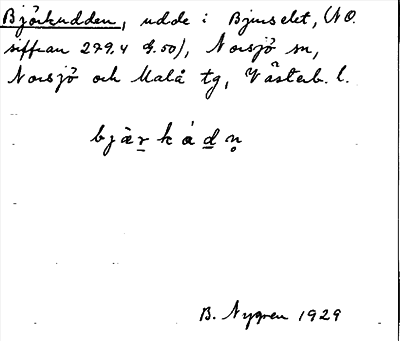 Björkudden, udde i Bjurselet, (NO.
siffran 279,4 G.50), Norsjö sn,
Norsjö och Malå tg, Västerb. l.
bjä̀r̲kád̲n̥
B. Nygren 1929